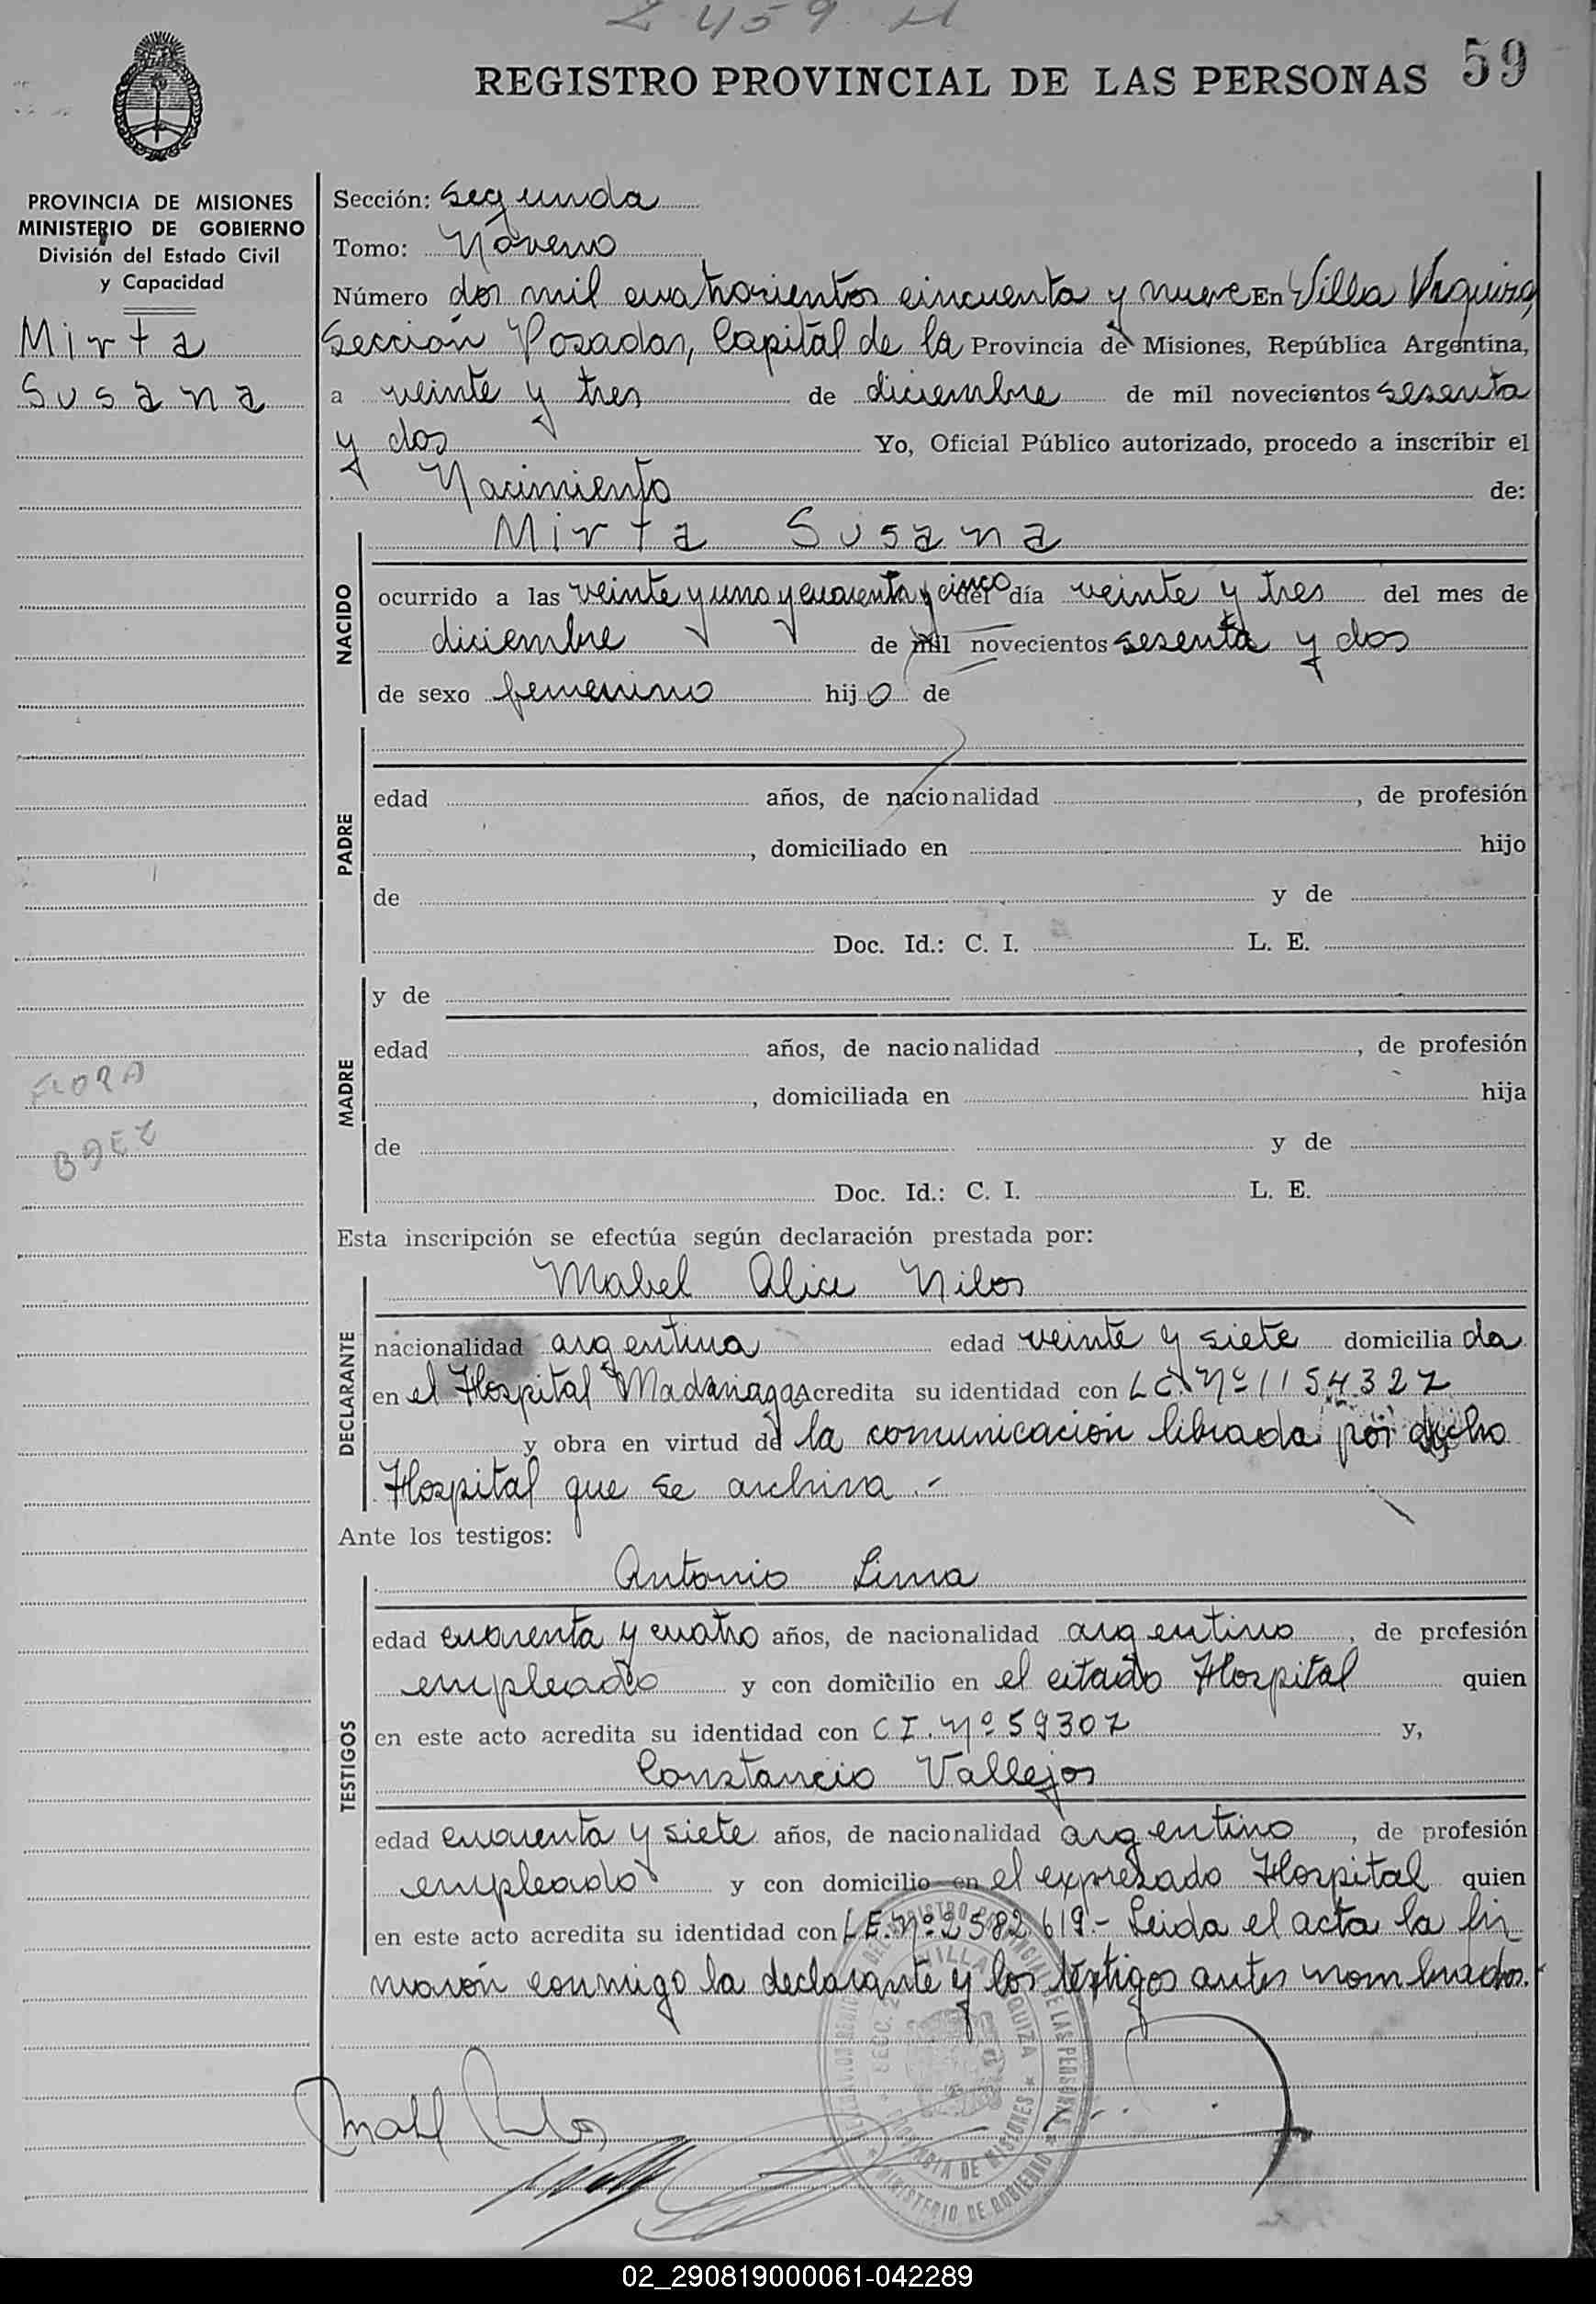 2459 H
REGISTRO PROVINCIAL DE LAS PERSONAS 59
PROVINCIA DE MISIONES
MINISTERIO DE GOBIERNO
División del Estado Civil
y Capacidad
Mirta
Susana
FLORA
BAEZ
Sección: Segunda
Tomo: Noveno
Número dos mil cuatrocientos cincuenta y nueve En Villa Urquiza,
Sección Posadas, Capital de la Provincia de Misiones, República Argentina,
a veinte y tres de diciembre de mil novecientos sesenta
y dos Yo, Oficial Público autorizado, procedo a inscribir el
Nacimiento de:
NACIDO
Mirta Susana
ocurrido a las veinte y uno y cuarenta y cinco del día veinte y tres del mes de
diciembre de mil novecientos sesenta y dos
de sexo femenino hijo de
PADRE
edad años, de nacionalidad , de profesión
, domiciliado en hijo
de y de
Doc. Id.: C. I. L. E.
MADRE
y de
edad años, de nacionalidad , de profesión
, domiciliada en hija
de y de
Doc. Id.: C. I. L. E.
Esta inscripción se efectúa según declaración prestada por:
DECLARANTE
Mabel Alice Nilos
nacionalidad argentina edad veinte y siete domiciliada
en el Hospital Madariaga Acredita su identidad con L C. Nº 1154327
y obra en virtud de la comunicación librada por dicho
Hospital que se archiva.-
Ante los testigos:
TESTIGOS
Antonio Lima
edad cuarenta y cuatro años, de nacionalidad argentino, de profesión
empleado y con domicilio en el citado Hospital quien
en este acto acredita su identidad con C I. Nº 59307 y,
Constancio Vallejos
edad cuarenta y siete años, de nacionalidad argentino, de profesión
empleado y con domicilio en el expresado Hospital quien
en este acto acredita su identidad con L E. Nº 2582619.- Leida el acta la fir
maron conmigo la declarante y los testigos antes nombrados.
02_290819000061-042289